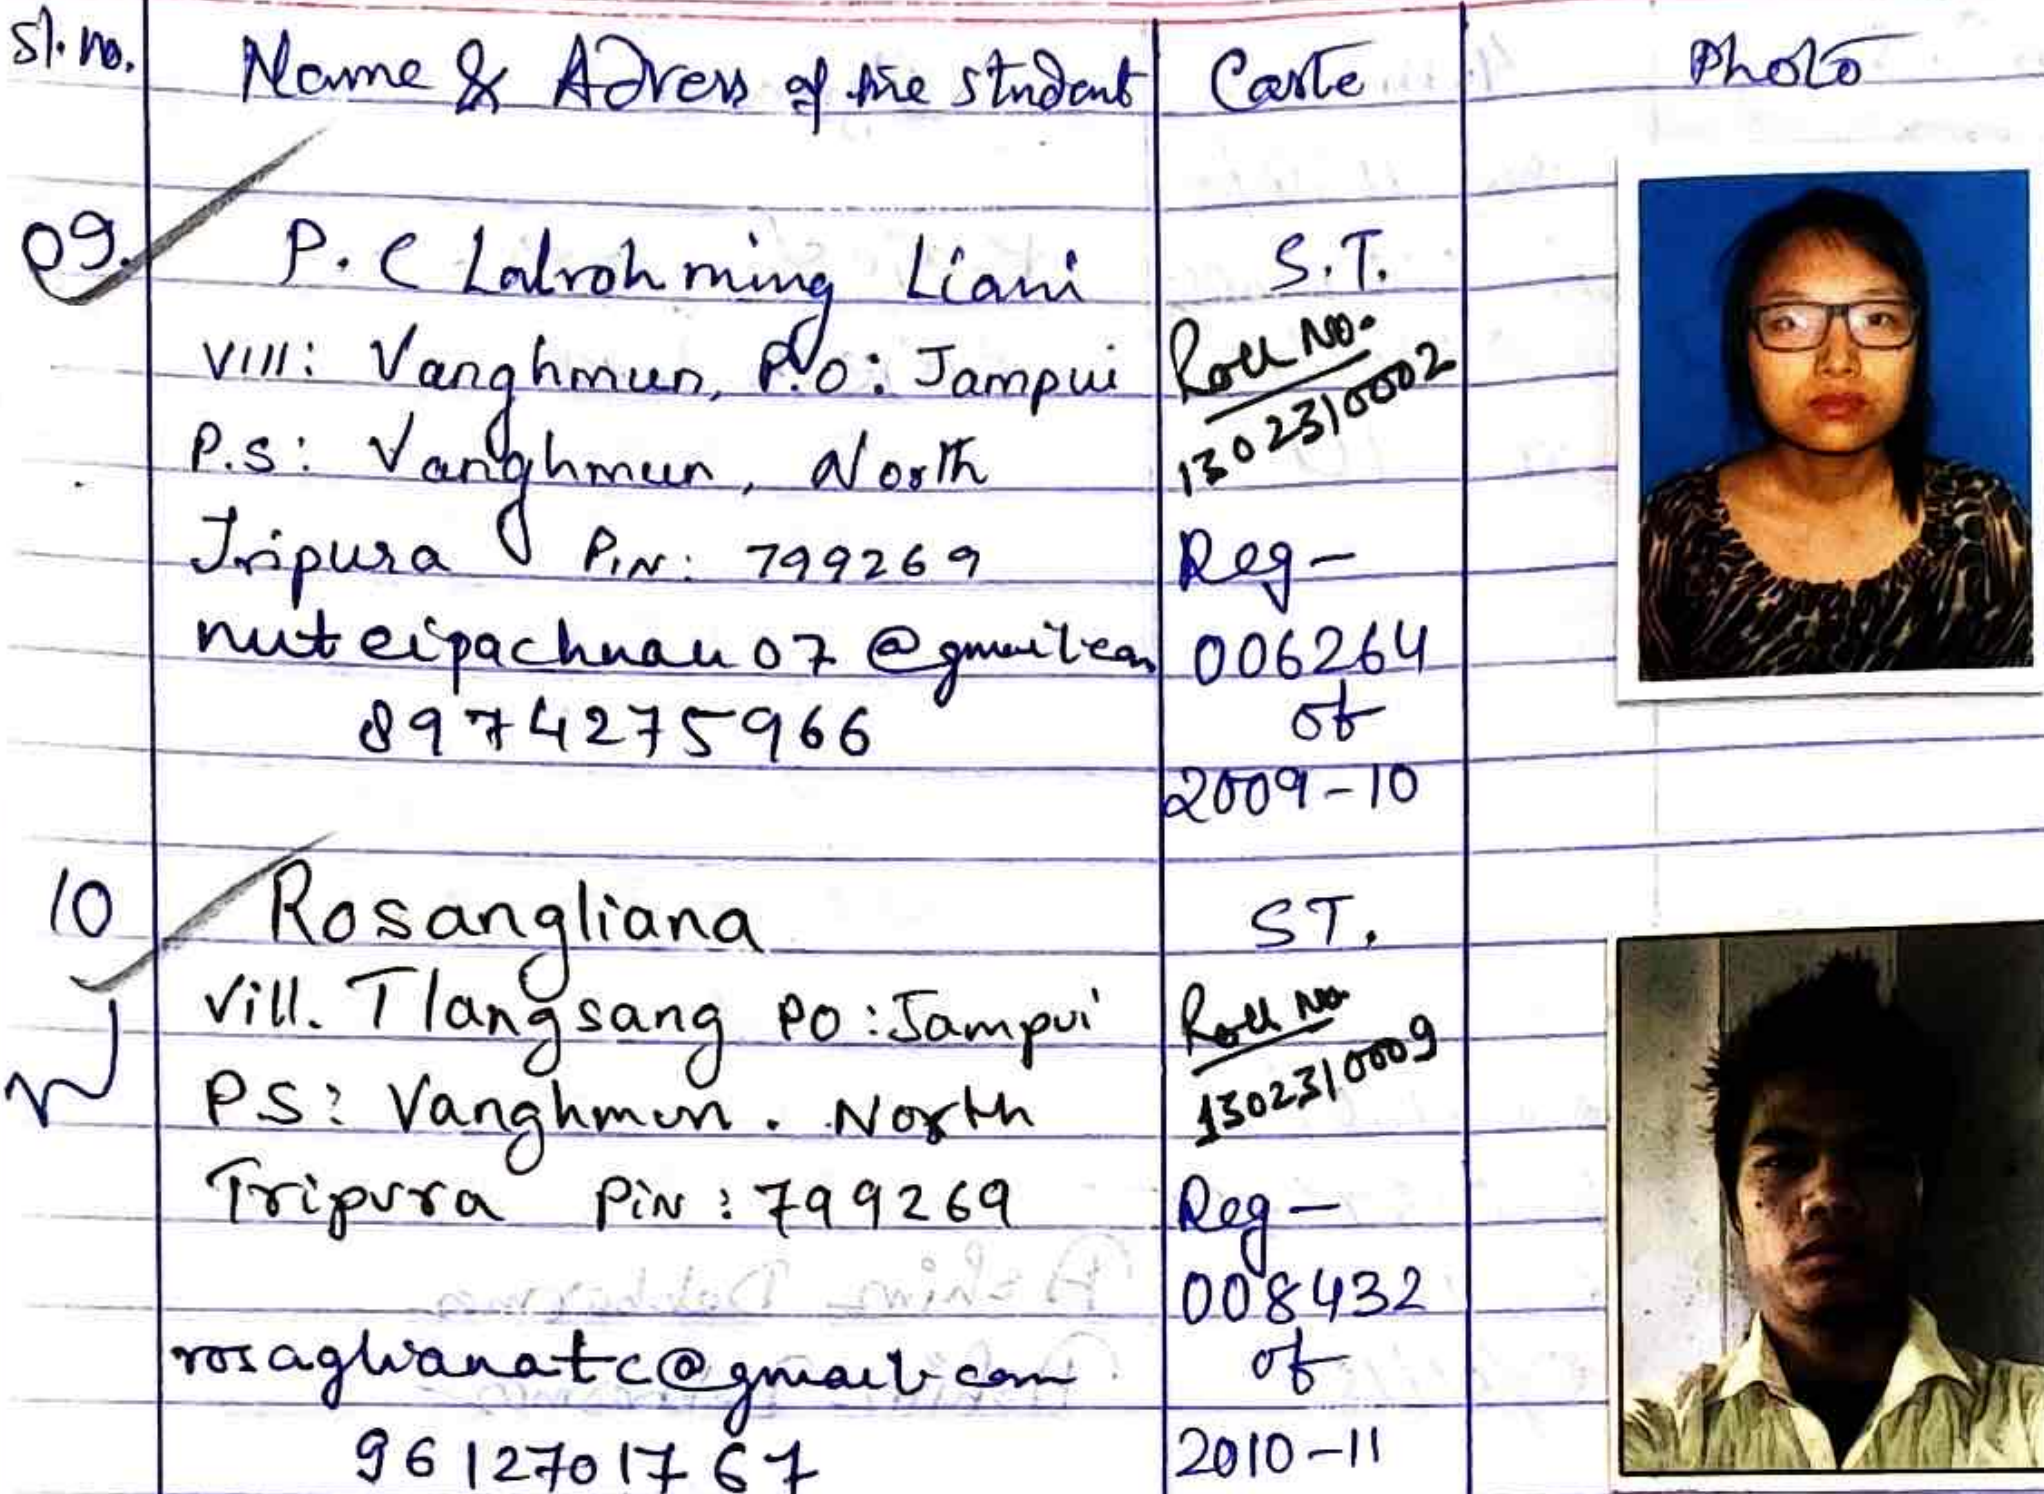 Sl. no.
Name & Adress of the student
Caste
Photo
09.
P. C Lalrohming Liani
Vill: Vanghmun, P.O: Jampui
P.S: Vanghmun, North
Tripura Pin: 799269
nuteipachuau07@gmail.com
8974275966
S.T.
Roll No.
1302310002
Reg-
006264
of
2009-10
10
Rosangliana
Vill. Tlangsang PO: Jampui
PS: Vanghmun. North
Tripura Pin: 799269
rosaglianatc@gmail.com
9612701767
ST.
Roll No
1302310009
Reg-
008432
of
2010-11